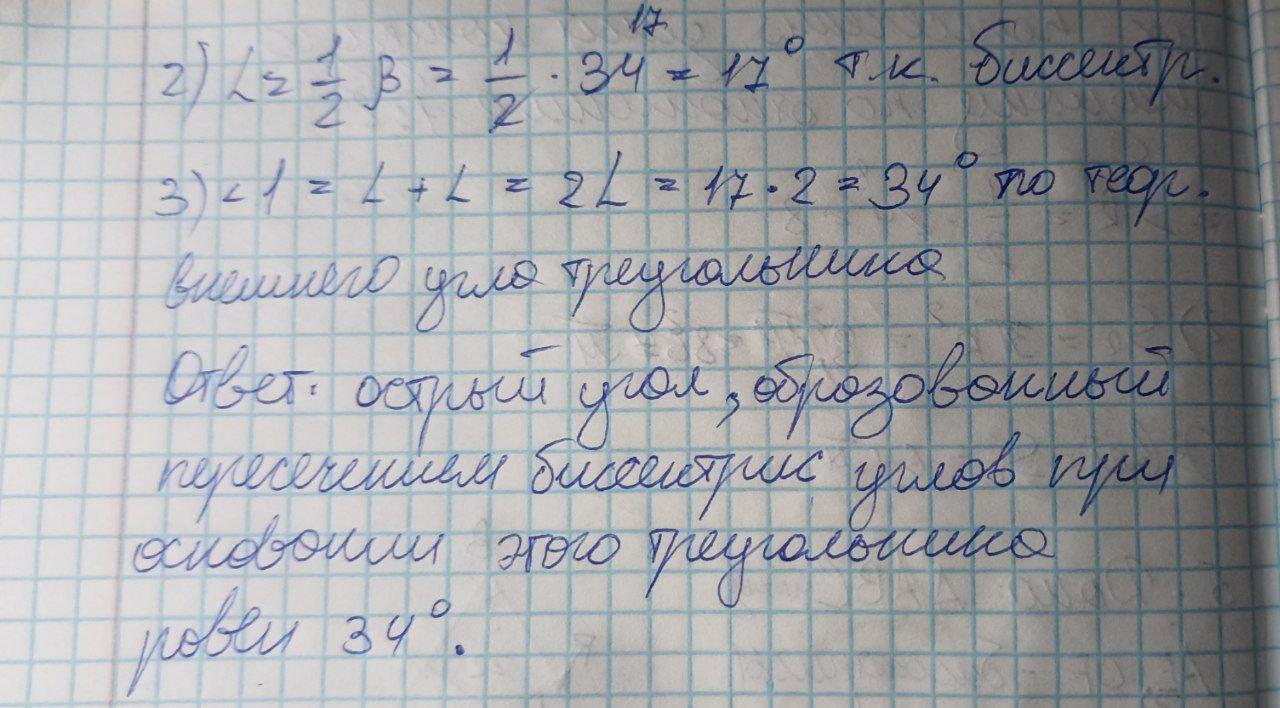 2) ∠ = 1/2 β = 1/2 · 34 17 = 17° т.к. биссектр.
3) <1 = ∠ + ∠ = 2∠ = 17·2 = 34° по теор.
внешнего угла треугольника
Ответ: острый угол, образованный
пересечением биссектрис углов при
основании этого треугольника
равен 34°.